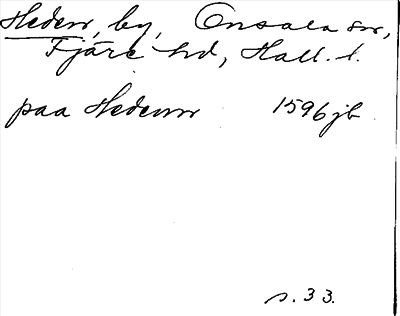 Heden, by, Onsala sn,
Fjäre hd, Hall. l.
paa Hedenn 1596 jb
s. 33.